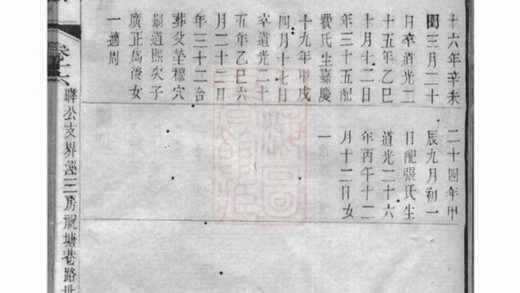 十六年辛未
閏三月二十
日卒道光二
十五年乙巳
十月十二日
年三十五配
費氏生嘉慶
十九年甲戌
四月十七日
卒道光二十
五年乙巳六
月二十二日
年三十二合
葬父塋穆穴
嗣道熙次子
廣正爲後女
一適周
二十四年甲
辰九月初一
日配張氏生
道光二十六
年丙午十二
月十二日女
一
聯公支界涇三房塘巷路世